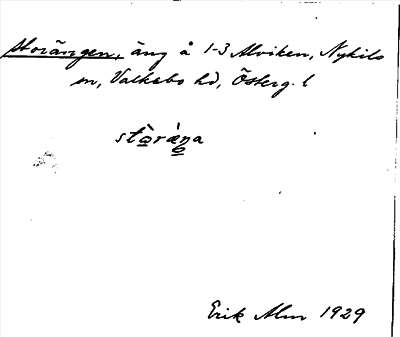 Storängen, äng å 1-3 Alviken, Nykils
sn, Valkebo hd, Österg. l
stòrǽŋa
Erik Alm 1929